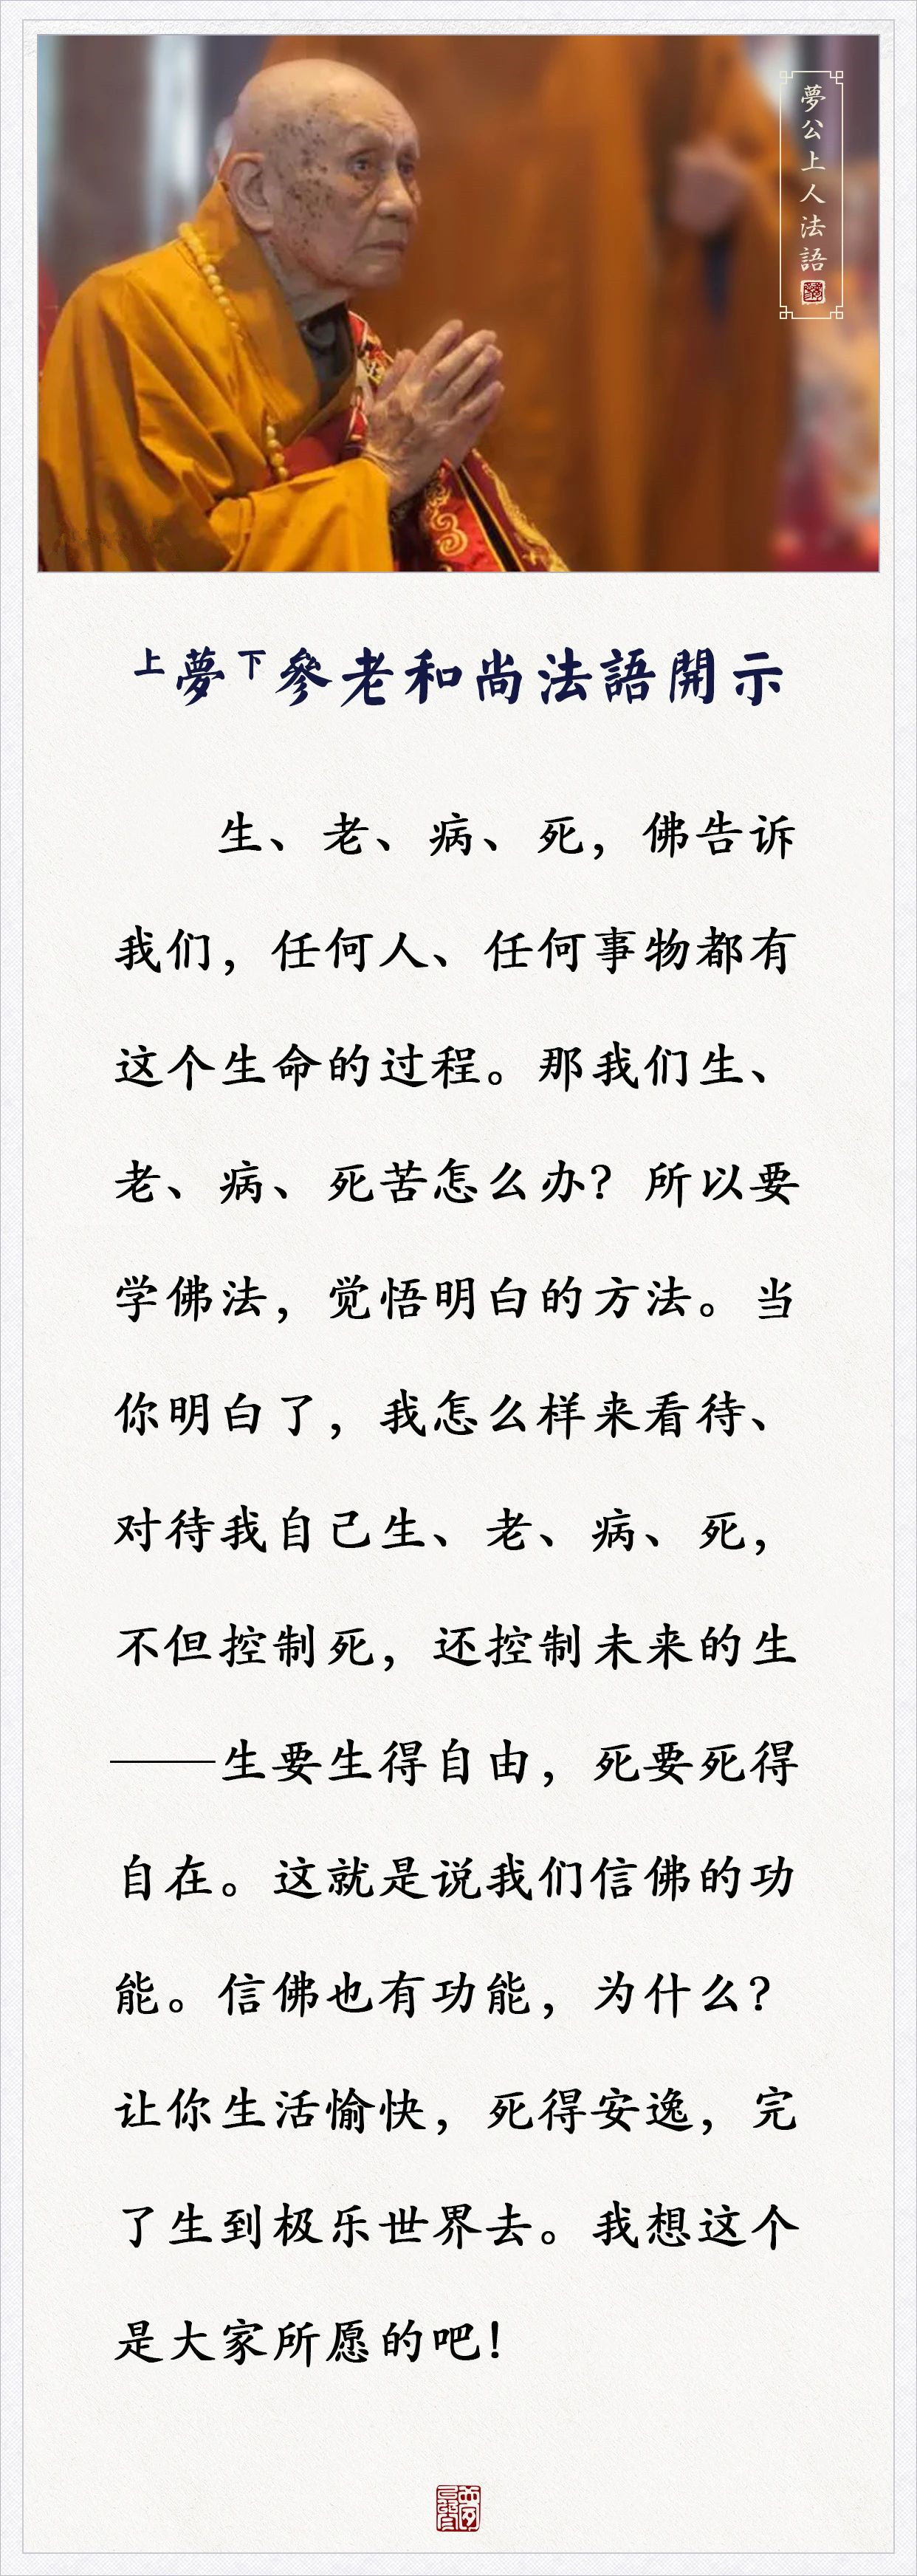 夢公上人法語
上夢下參老和尚法語開示
生、老、病、死，佛告诉
我们，任何人、任何事物都有
这个生命的过程。那我们生、
老、病、死苦怎么办？所以要
学佛法，觉悟明白的方法。当
你明白了，我怎么样来看待、
对待我自己生、老、病、死，
不但控制死，还控制未来的生
——生要生得自由，死要死得
自在。这就是说我们信佛的功
能。信佛也有功能，为什么？
让你生活愉快，死得安逸，完
了生到极乐世界去。我想这个
是大家所愿的吧！